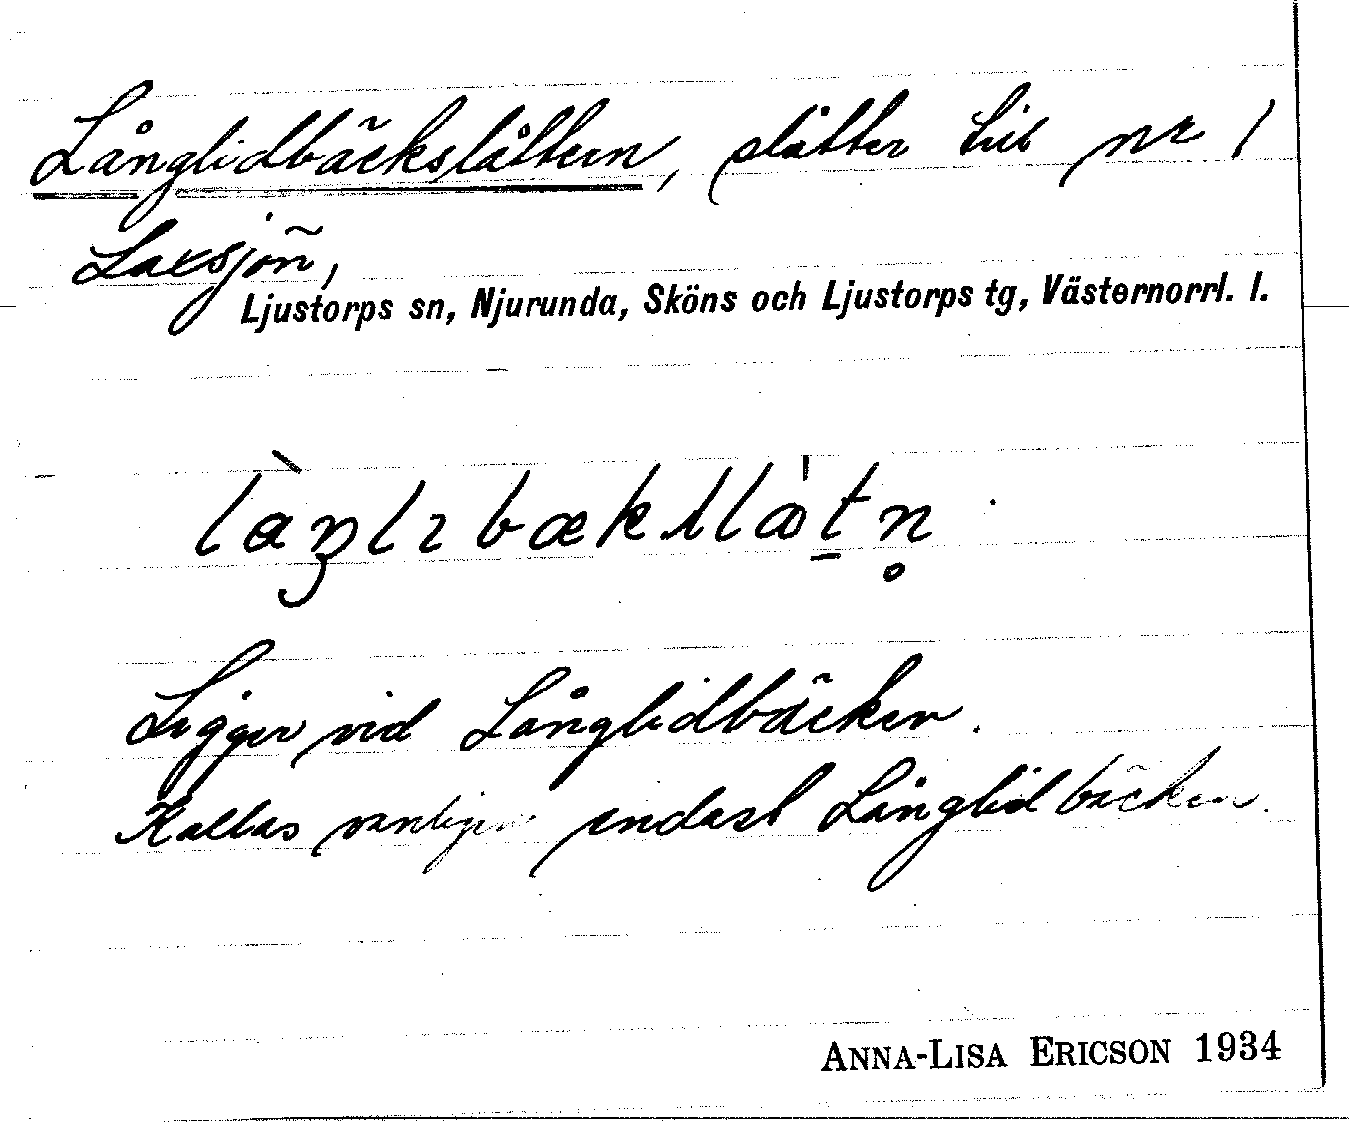 Långlidbäckslåttern, slåtter till nr 1
Laxsjön,
Ljustorps sn, Njurunda, Sköns och Ljustorps tg, Västernorrl. l.
làŋlɪbækslàt̲n̥
Ligger vid Långlidbäcken.
Kallas vanligen endast Långlidbäcken.
ANNA-LISA ERICSON 1934